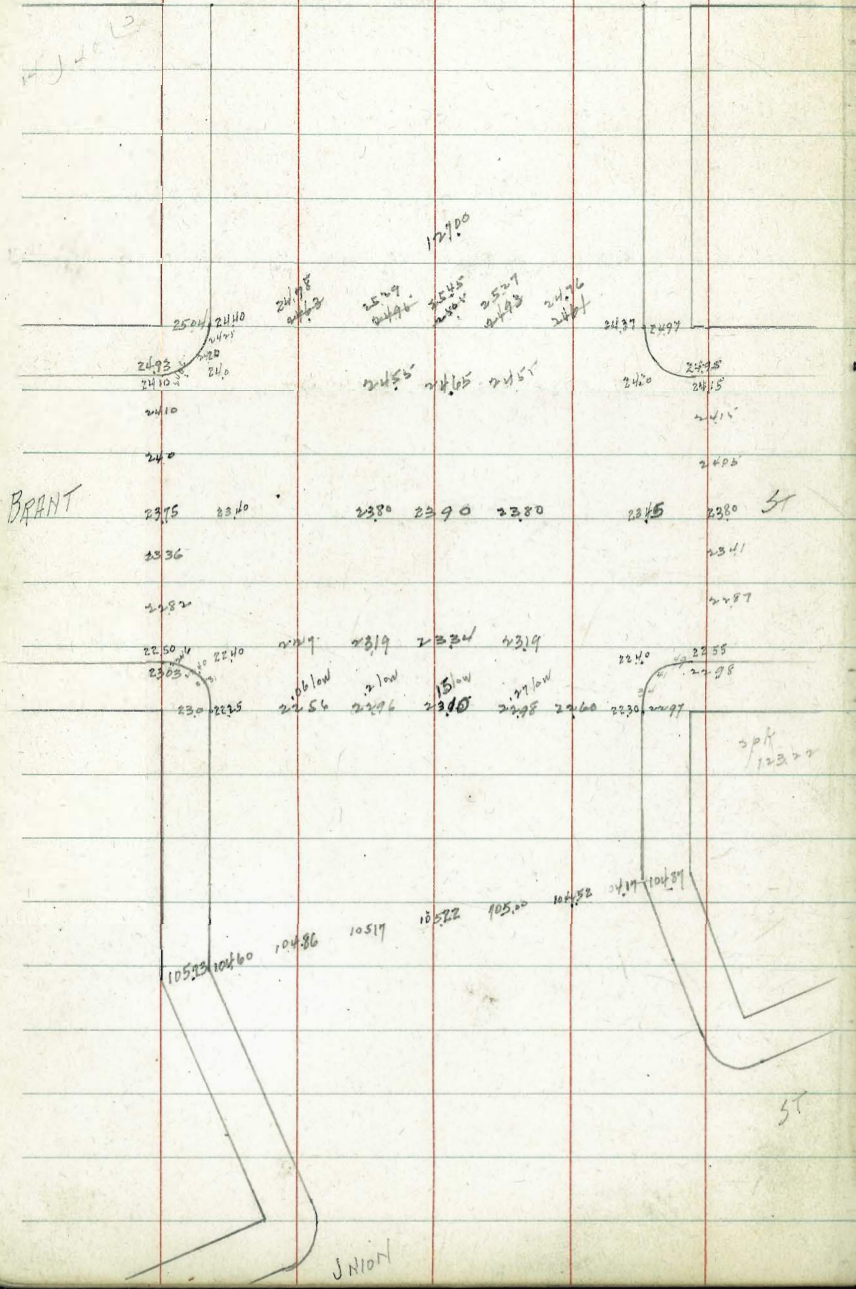 127.00
24.98 25.29 25.45 25.27 24.76
25.04 24.40 24.63 24.96 24.93 24.61 24.37 24.97
24.20
24.93 24.0 24.95
24.10 24.55 24.65 24.55 24.20 24.15
24.10 24.15
24.0 24.05
BRANT 23.75 23.40 23.80 23.90 23.80 23.45 23.80 ST
23.36 23.41
22.82 22.87
22.50 22.40 23.19 23.34 23.19 22.40 22.55
23.03 22.98
.06 low .2 low .15 low .27 low
23.0 22.25 22.56 22.96 23.10 22.98 22.60 22.30 22.97
spk
123.22
105.23 104.60 104.86 105.17 105.22 105.00 104.52 104.17 104.87
ST
UNION